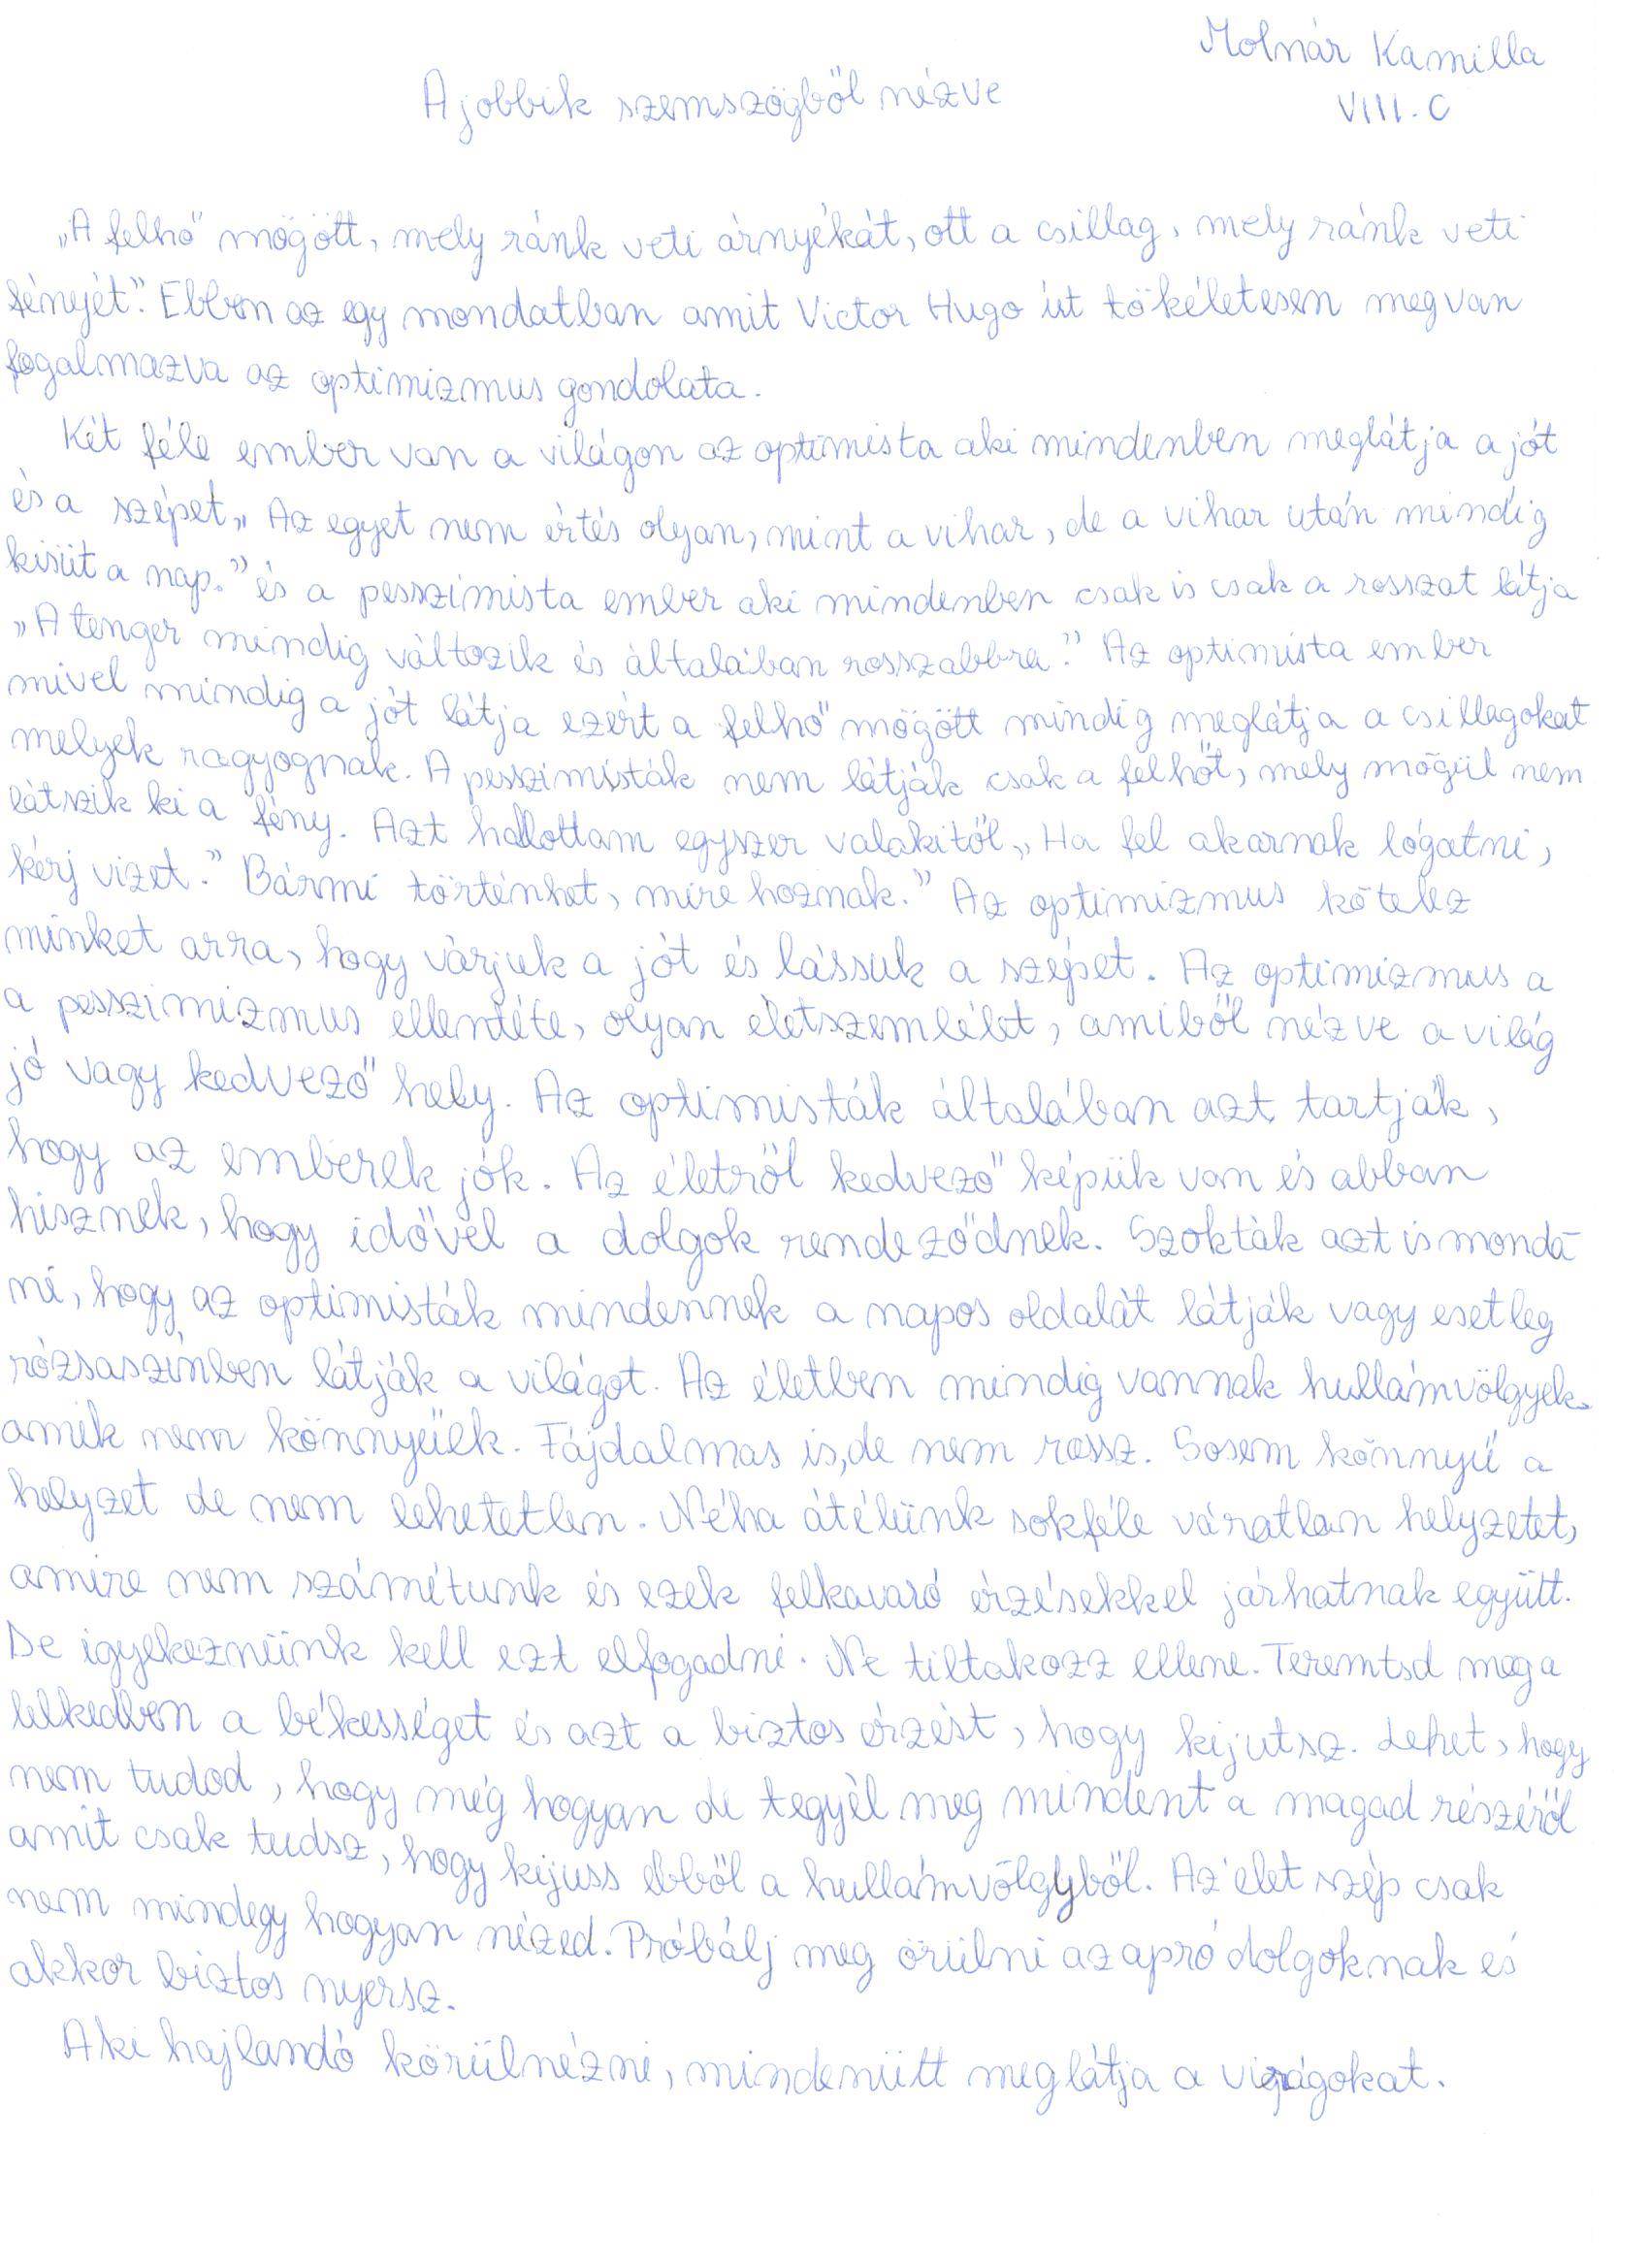 Molnár Kamilla
VIII. C
A jobbik szemszögből nézve
„A felhő mögött, mely ránk veti árnyékát, ott a csillag, mely ránk veti
fényét”. Ebben az egy mondatban amit Victor Hugo írt tökéletesen megvan
fogalmazva az optimizmus gondolata.
Két féle ember van a világon az optimista aki mindenben meglátja a jót
és a szépet „Az egyet nem értés olyan, mint a vihar, de a vihar után mindíg
kisüt a nap.” és a pesszimista ember aki mindenben csak is csak a rosszat látja
„A tenger mindig változik és általában rosszabbra.” Az optimista ember
mivel mindig a jót látja ezért a felhő mögött mindíg meglátja a csillagokat
melyek ragyognak. A pesszimisták nem látják csak a felhőt, mely mögül nem
látszik ki a fény. Azt hallottam egyszer valakitől „Ha fel akarnak lógatni,
kérj vizet.” Bármi történhet, mire hoznak.” Az optimizmus kötelez
minket arra, hogy várjuk a jót és lássuk a szépet. Az optimizmus a
a pesszimizmus ellentéte, olyan életszemlélet, amiből nézve a világ
jó vagy kedvező hely. Az optimisták általában azt tartják,
hogy az emberek jók. Az életről kedvező képük van és abban
hisznek, hogy idővel a dolgok rendeződnek. Szokták azt is mondá-
ni, hogy az optimisták mindennek a napos oldalát látják vagy esetleg
rózsaszínben látják a világot. Az életben mindig vannak hullámvölgyek,
amik nem könnyűek. Fájdalmas is, de nem rossz. Sosem könnyű a
helyzet de nem lehetetlen. Néha átélünk sokféle váratlan helyzetet,
amire nem számítunk és ezek felkavaró érzésekkel járhatnak együtt.
De igyekeznünk kell ezt elfogadni. Ne tiltakozz ellene. Teremtsd meg a
lelkedben a békességet és azt a biztos érzést, hogy kijutsz. Lehet, hogy
nem tudod, hogy még hogyan de tegyél meg mindent a magad részéről
amit csak tudsz, hogy kijuss ebből a hullámvölgyből. Az élet szép csak
nem mindegy hogyan nézed. Próbálj meg örülni az apró dolgoknak és
akkor biztos nyersz.
Aki hajlandó körülnézni, mindenütt meglátja a virágokat.